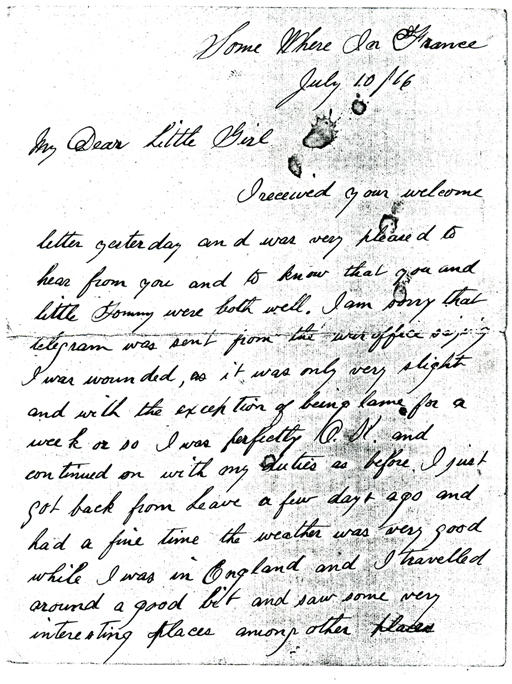 Some Where In France
July 10/16
My Dear Little Girl
I received your welcome
letter yesterday and was very pleased to
hear from you and to know that you and
little Tommy were both well. I am sorry that
telegram was sent from the war office saying
I was wounded, as it was only very slight
and with the exception of being lame for a
week or so I was perfectly O.K. and
continued on with my duties as before. I just
got back from leave a few days ago and
had a fine time the weather was very good
while I was in England and I travelled
around a good bit and saw some very
interesting places among other places